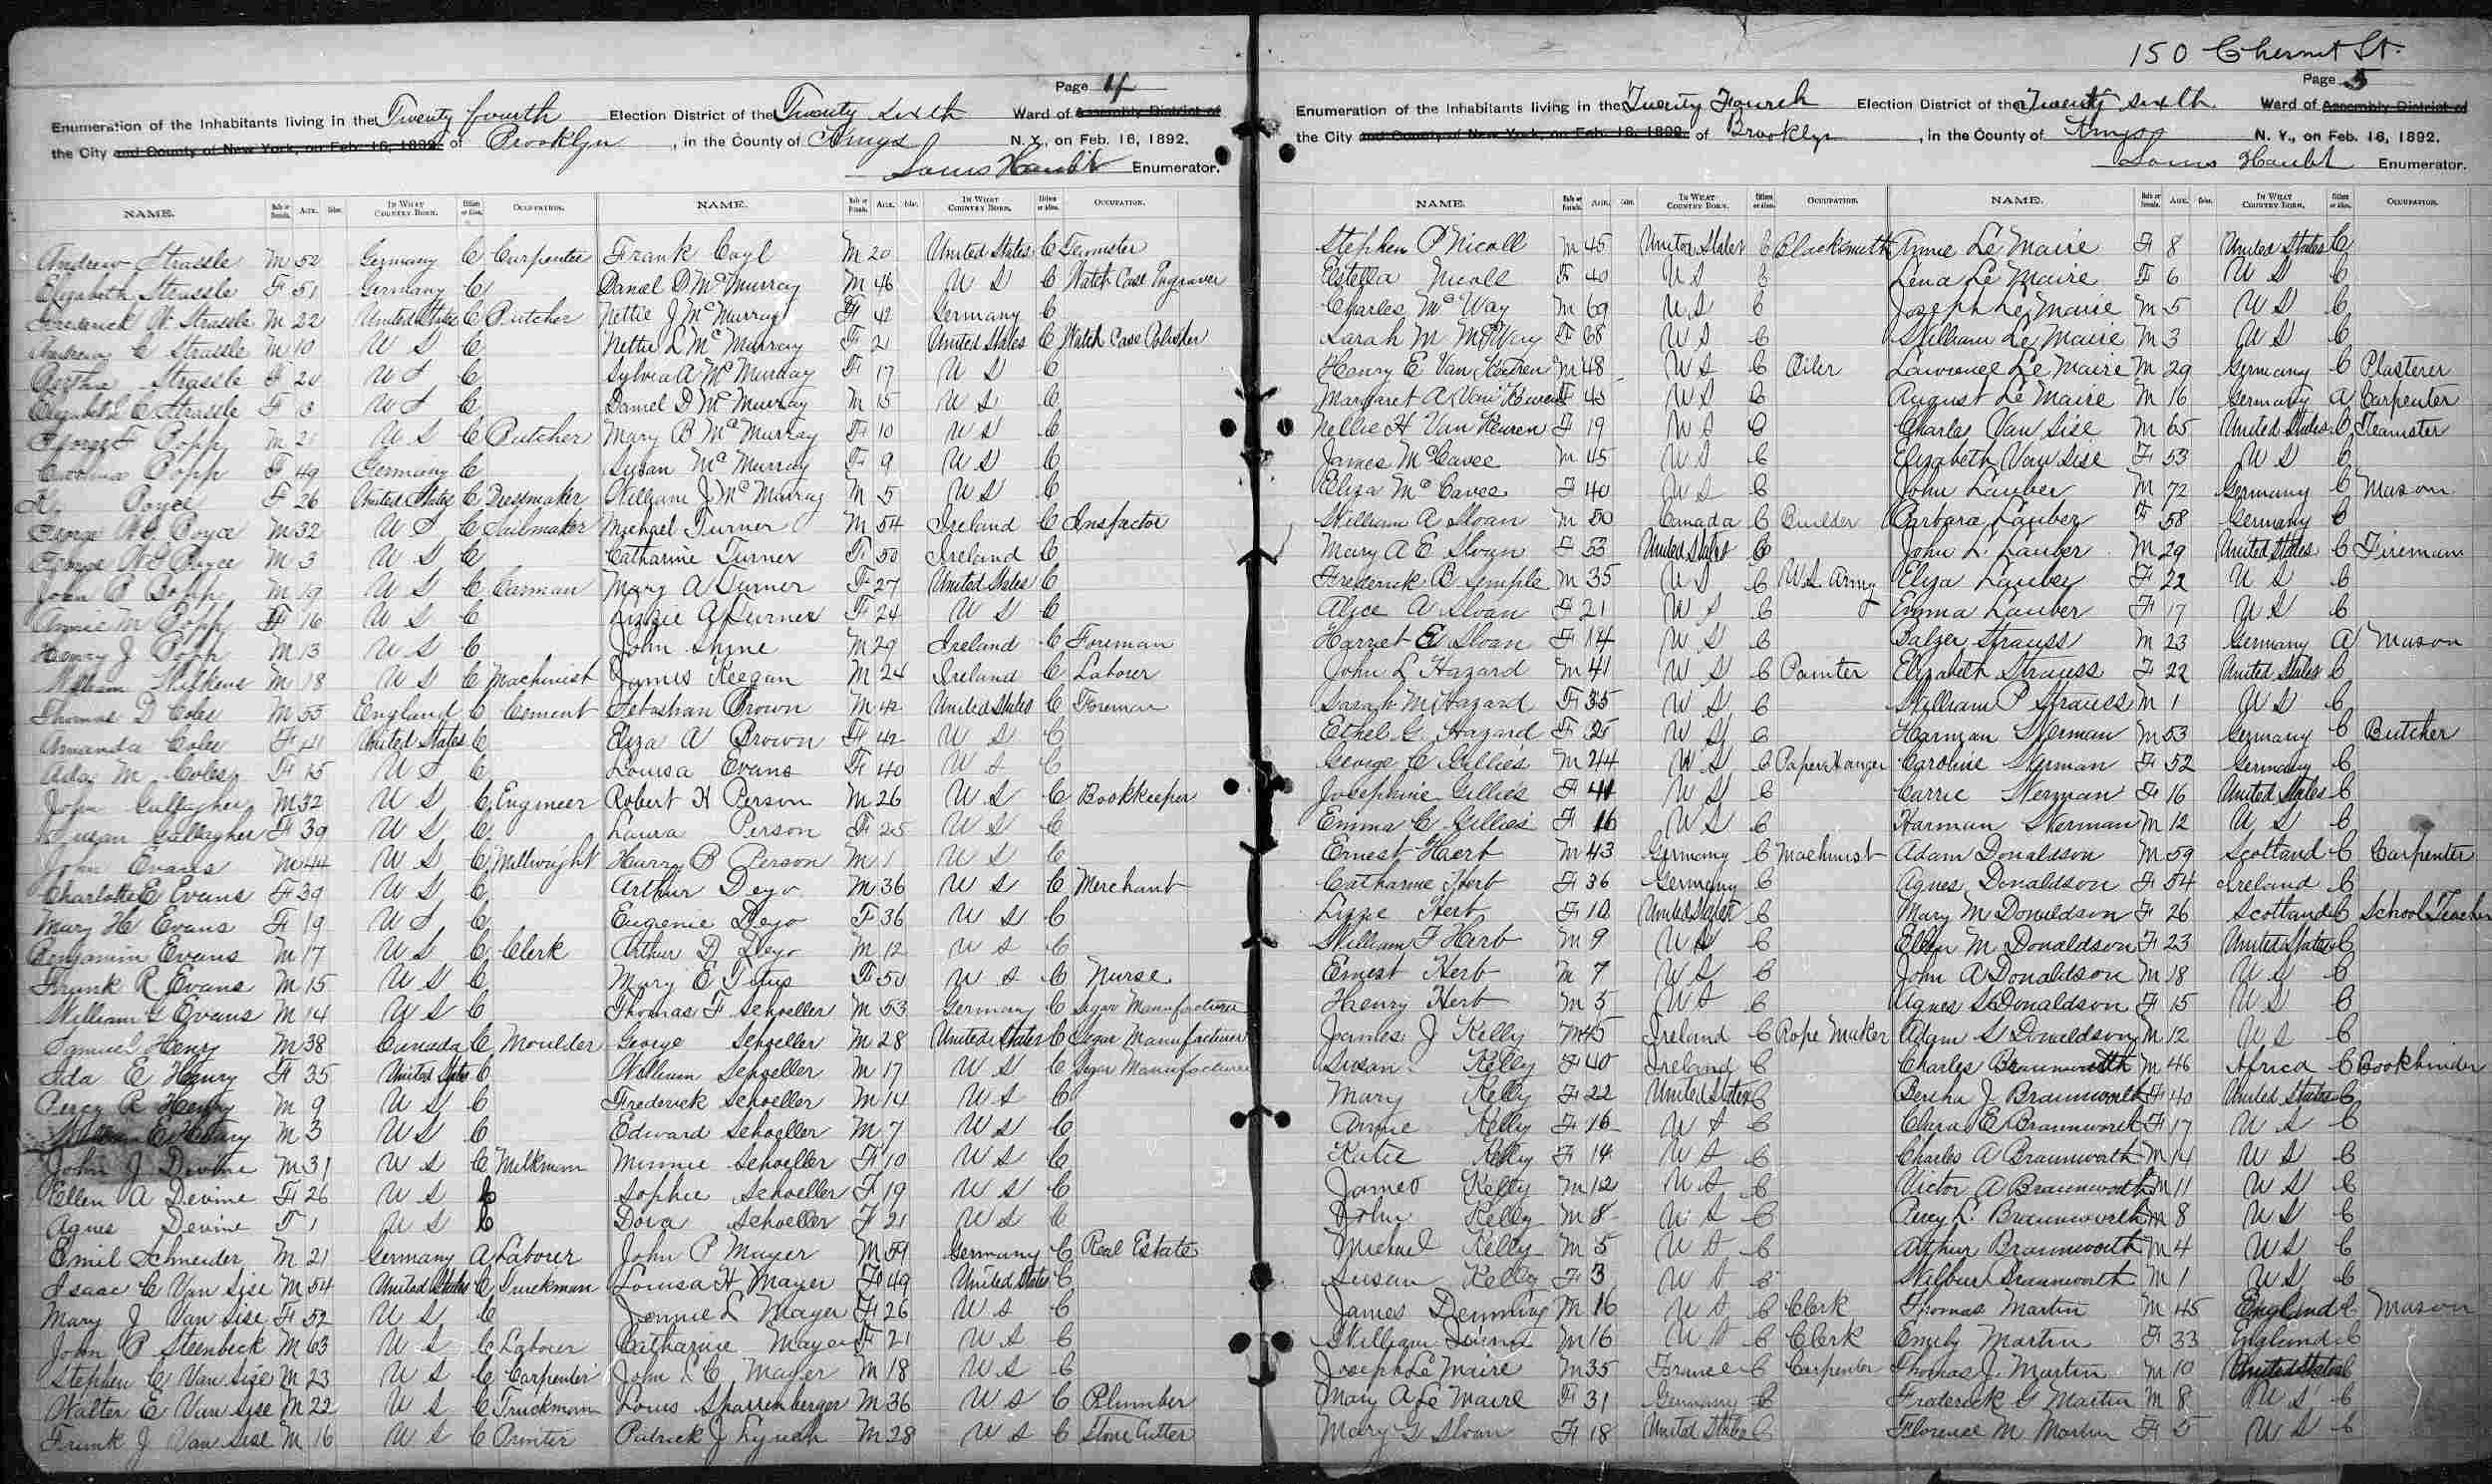 Page 4
Enumeration of the Inhabitants living in the Twenty fourth Election District of the Twenty sixth Ward of Assembly District of
the City and County of New York, on Feb. 16, 1892. of Brooklyn, in the County of Kings N. Y., on Feb. 16, 1892.
Louis Haubt Enumerator.
NAME. Male or Female. AGE. Color. IN WHAT COUNTRY BORN. Citizen or Alien. OCCUPATION. NAME. Male or Female. AGE. Color. IN WHAT COUNTRY BORN. Citizen or Alien. OCCUPATION.
Andrew Strassle M 52 Germany C Carpenter
Elizabeth Strassle F 51 Germany C
Frederick W Strassle M 22 United States C Butcher
Andrew C Strassle M 10 U S C
Bertha Strassle F 20 U S C
Elizabeth C Strassle F 13 U S C
George F Popp M 21 U S C Butcher
Carolina Popp F 49 Germany C
Boyce F 26 United States C Dressmaker
George W S Boyce M 32 U S C Sailmaker
George W S Boyce M 3 U S C
John P Popp M 19 U S C Carman
Annie M Popp F 16 U S C
Henry J Popp M 13 U S C
William Wilkens M 18 U S C Machinist
Thomas D Coles M 55 England C Cement
Amanda Coles F 41 United States C
Ada M Coles F 15 U S C
John Gallagher M 32 U S C Engineer
Susan Gallagher F 39 U S C
John Evans M 44 U S C Millwright
Charlotte E Evans F 39 U S C
Mary H Evans F 19 U S C
Benjamin Evans M 17 U S C Clerk
Frank R Evans M 15 U S C
William G Evans M 14 U S C
Samuel Henry M 38 Canada C Moulder
Ida E Henry F 35 United States C
Percy R Henry M 9 U S C
William E Henry M 3 U S C
John J Devine M 31 U S C Milkman
Ellen A Devine F 26 U S C
Agnes Devine F 1 U S C
Emil Schneider M 21 Germany A Laborer
Isaac C Van Sise M 54 United States C Truckman
Mary J Van Sise F 52 U S C
John P Steenbeck M 63 U S C Laborer
Stephen C Van Sise M 23 U S C Carpenter
Walter E Van Sise M 22 U S C Truckman
Frank J Van Sise M 16 U S C Printer
Frank Coyl M 20 United States C Teamster
Daniel D McMurray M 46 U S C Watch Case Engraver
Nettie J McMurray F 42 Germany C
Nettie L McMurray F 21 United States C Watch Case Polisher
Sylvia A McMurray F 17 U S C
Daniel D McMurray M 15 U S C
Mary B McMurray F 10 U S C
Susan McMurray F 9 U S C
William J McMurray M 5 U S C
Michael Turner M 54 Ireland C Inspactor
Catharine Turner F 50 Ireland C
Mary A Turner F 27 United States C
Lizzie A Turner F 24 U S C
John Shine M 29 Ireland C Foreman
James Keegan M 24 Ireland C Laborer
Sebastian Brown M 42 United States C Foreman
Eliza A Brown F 42 U S C
Louisa Evans F 40 U S C
Robert H Person M 26 U S C Bookkeeper
Laura Person F 25 U S C
Harry B Person M 1 U S C
Arthur Deyo M 36 U S C Merchant
Eugenie Deyo F 36 U S C
Arthur D Deyo M 12 U S C
Mary E Titus F 50 U S C Nurse
Thomas F Schoeller M 53 Germany C Segar Manufacturer
George Schoeller M 28 United States C Segar Manufacturer
William Schoeller M 17 U S C Segar Manufacturer
Frederick Schoeller M 14 U S C
Edward Schoeller M 7 U S C
Minnie Schoeller F 10 U S C
Sophie Schoeller F 19 U S C
Dora Schoeller F 21 U S C
John P Mayer M 59 Germany C Real Estate
Louisa H Mayer F 49 United States C
Jennie L Mayer F 26 U S C
Catharine Mayer F 21 U S C
John L C Mayer M 18 U S C
Louis Sparrenberger M 36 U S C Plumber
Patrick J Lynah M 28 U S C Stone Cutter
150 Chesnut St.
Page 5
Enumeration of the Inhabitants living in the Twenty Fourth Election District of the Twenty sixth Ward of Assembly District of
the City and County of New York, on Feb. 16, 1892. of Brooklyn, in the County of Kings N. Y., on Feb. 16, 1892.
Louis Haubt Enumerator.
NAME. Male or Female. AGE. Color. IN WHAT COUNTRY BORN. Citizen or Alien. OCCUPATION. NAME. Male or Female. AGE. Color. IN WHAT COUNTRY BORN. Citizen or Alien. OCCUPATION.
Stephen P Nicoll M 45 United States C Blacksmith
Estella Nicoll F 40 U S C
Charles McWay M 69 U S C
Sarah M McWay F 68 U S C
Henry E Van Keuren M 48 U S C Oiler
Margaret A Van Keuren F 45 U S C
Nellie H Van Keuren F 19 U S C
James McCavee M 45 U S C
Eliza McCavee F 40 U S C
William A Sloan M 50 Canada C Builder
Mary A E Sloan F 53 United States C
Frederick B Semple M 35 U S C U S Army
Alice A Sloan F 21 U S C
Harriet E Sloan F 14 U S C
John L Hazard M 41 U S C Painter
Sarah M Hazard F 35 U S C
Ethel G Hazard F U S C
George C Gillies M 44 U S C Paper Hanger
Josephine Gillies F 41 U S C
Emma C Gillies F 16 U S C
Ernest Haerb M 43 Germany C Machinist
Catharine Herb F 36 Germany C
Lizzie Herb F 10 United States C
William F Herb M 9 U S C
Ernest Herb M 7 U S C
Henry Herb M 5 U S C
James J Kelly M 45 Ireland C Rope Maker
Susan Kelly F 40 Ireland C
Mary Kelly F 22 United States C
Annie Kelly F 16 U S C
Katie Kelly F 14 U S C
James Kelly M 12 U S C
John Kelly M 8 U S C
Michael Kelly M 5 U S C
Susan Kelly F 3 U S C
James Demming M 16 U S C Clerk
William M 16 U S C Clerk
Joseph Le Maire M 35 France C Carpenter
Mary A Le Maire F 31 Germany C
Mary G Sloan F 18 United States C
Annie Le Maire F 8 United States C
Lena Le Maire F 6 U S C
Joseph Le Maire M 5 U S C
William Le Maire M 3 U S C
Lawrence Le Maire M 29 Germany C Plasterer
August Le Maire M 16 Germany A Carpenter
Charles Van Sise M 65 United States C Teamster
Elizabeth Van Sise F 53 U S C
John Lauber M 72 Germany C Mason
Barbara Lauber F 58 Germany C
John L Lauber M 29 United States C Fireman
Eliza Lauber F 22 U S C
Emma Lauber F 17 U S C
Balzer Strauss M 23 Germany A Mason
Elizabeth Strauss F 22 United States C
William P Strauss M 1 U S C
Harman Sterman M 53 Germany C Butcher
Caroline Sterman F 52 Germany C
Carrie Sterman F 16 United States C
Harman Sterman M 12 U S C
Adam Donaldson M 59 Scotland C Carpenter
Agnes Donaldson F 54 Ireland C
Mary M Donaldson F 26 Scotland C School Teacher
Ellen M Donaldson F 23 United States C
John A Donaldson M 18 U S C
Agnes S Donaldson F 15 U S C
Adam S Donaldson M 12 U S C
Charles Braunworth M 46 Africa C Bookbinder
Bertha J Braunworth F 40 United States C
Clara E Braunworth F 17 U S C
Charles A Braunworth M 14 U S C
Victor A Braunworth M 11 U S C
Percy L Braunworth M 8 U S C
Arthur Braunworth M 4 U S C
Wilbur Braunworth M 1 U S C
Thomas Martin M 45 England C Mason
Emily Martin F 33 England C
Thomas J Martin M 10 United States C
Frederick G Martin M 8 U S C
Florence M Martin F 5 U S C